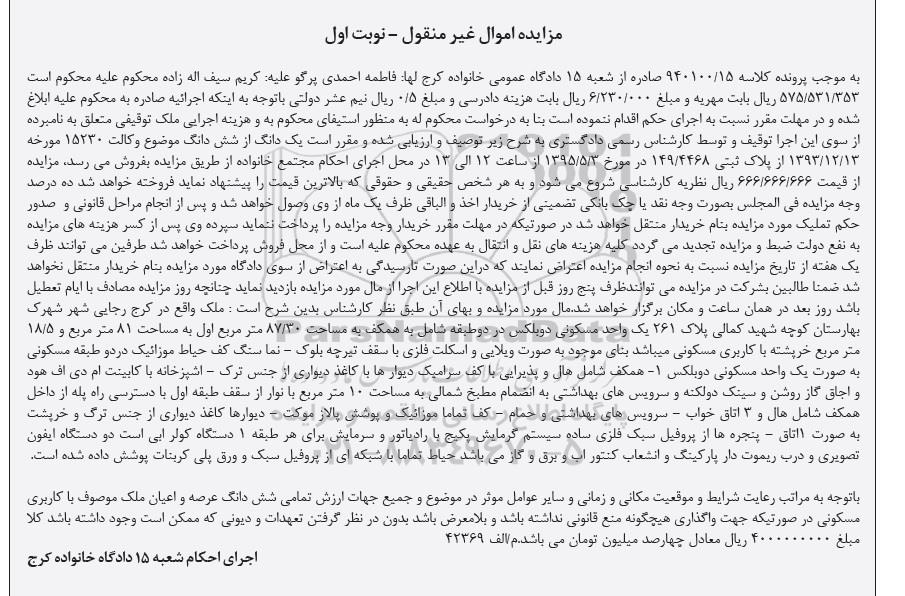 مزایده اموال غیر منقول – نوبت اول
به موجب پرونده کلاسه ۹۴۰۱۰۰/۱۵ صادره از شعبه ۱۵ دادگاه عمومی خانواده کرج لها: فاطمه احمدی پرگو علیه: کریم سیف اله زاده محکوم علیه محکوم است
۵۷۵/۵۳۱/۳۵۳ ریال بابت مهریه و مبلغ ۶/۲۳۰/۰۰۰ ریال بابت هزینه دادرسی و مبلغ ۰/۵ ریال نیم عشر دولتی باتوجه به اینکه اجرائیه صادره به محکوم علیه ابلاغ
شده و در مهلت مقرر نسبت به اجرای حکم اقدام ننموده است بنا به درخواست محکوم له به منظور استیفای محکوم به و هزینه اجرایی ملک توقیفی متعلق به نامبرده
از سوی این اجرا توقیف و توسط کارشناس رسمی دادگستری به شرح زیر توصیف و ارزیابی شده و مقرر است یک دانگ از شش دانگ موضوع وکالت ۱۵۲۳۰ مورخه
۱۳۹۳/۱۲/۱۳ از پلاک ثبتی ۱۴۹/۴۴۶۸ در مورخ ۱۳۹۵/۵/۳ از ساعت ۱۲ الی ۱۳ در محل اجرای احکام مجتمع خانواده از طریق مزایده بفروش می رسد، مزایده
از قیمت ۶۶۶/۶۶۶/۶۶۶ ریال نظریه کارشناسی شروع می شود و به هر شخص حقیقی و حقوقی که بالاترین قیمت را پیشنهاد نماید فروخته خواهد شد ده درصد
وجه مزایده فی المجلس بصورت وجه نقد یا چک بانکی تضمینی از خریدار اخذ و الباقی ظرف یک ماه از وی وصول خواهد شد و پس از انجام مراحل قانونی و صدور
حکم تملیک مورد مزایده بنام خریدار منتقل خواهد شد در صورتیکه در مهلت مقرر خریدار وجه مزایده را پرداخت ننماید سپرده وی پس از کسر هزینه های مزایده
به نفع دولت ضبط و مزایده تجدید می گردد کلیه هزینه های نقل و انتقال به عهده محکوم علیه است و از محل فروش پرداخت خواهد شد طرفین می توانند ظرف
یک هفته از تاریخ مزایده نسبت به نحوه انجام مزایده اعتراض نمایند که دراین صورت تارسیدگی به اعتراض از سوی دادگاه مورد مزایده بنام خریدار منتقل نخواهد
شد ضمنا طالبین بشرکت در مزایده می توانندظرف پنج روز قبل از مزایده با اطلاع این اجرا از مال مورد مزایده بازدید نماید چنانچه روز مزایده مصادف با ایام تعطیل
باشد روز بعد در همان ساعت و مکان برگزار خواهد شد.مال مورد مزایده و بهای آن طبق نظر کارشناس بدین شرح است : ملک واقع در کرج رجایی شهر شهرک
بهارستان کوچه شهید کمالی پلاک ۲۶۱ یک واحد مسکونی دوبلکس در دوطبقه شامل به همکف به مساحت ۸۷/۳۰ متر مربع اول به مساحت ۸۱ متر مربع و ۱۸/۵
متر مربع خرپشته با کاربری مسکونی میباشد بنای موجود به صورت ویلایی و اسکلت فلزی با سقف تیرچه بلوک – نما سنگ کف حیاط موزائیک دردو طبقه مسکونی
به صورت یک واحد مسکونی دوبلکس ۱- همکف شامل هال و پذیرایی با کف سرامیک دیوار ها با کاغذ دیواری از جنس ترک – اشپزخانه با کابینت ام دی اف هود
و اجاق گاز روشن و سینک دولکنه و سرویس های بهداشتی به انضمام مطبخ شمالی به مساحت ۱۰ متر مربع با نوار از سقف طبقه اول با دسترسی راه پله از داخل
همکف شامل هال و ۳ اتاق خواب – سرویس های بهداشتی و حمام – کف تماما موزائیک و پوشش پالاز موکت – دیوارها کاغذ دیواری از جنس ترگ و خرپشت
به صورت ۱اتاق – پنجره ها از پروفیل سبک فلزی ساده سیستم گرمایش پکیج با رادیاتور و سرمایش برای هر طبقه ۱ دستگاه کولر ابی است دو دستگاه ایفون
تصویری و درب ریموت دار پارکینگ و انشعاب کنتور اب و برق و گاز می باشد حیاط تماما با شبکه ای از پروفیل سبک و ورق پلی کربنات پوشش داده شده است.
باتوجه به مراتب رعایت شرایط و موقعیت مکانی و زمانی و سایر عوامل موثر در موضوع و جمیع جهات ارزش تمامی شش دانگ عرصه و اعیان ملک موصوف با کاربری
مسکونی در صورتیکه جهت واگذاری هیچگونه منع قانونی نداشته باشد و بلامعرض باشد بدون در نظر گرفتن تعهدات و دیونی که ممکن است وجود داشته باشد کلا
مبلغ ۴۰۰۰۰۰۰۰۰۰ ریال معادل چهارصد میلیون تومان می باشد.م/الف ۴۲۳۶۹
اجرای احکام شعبه ۱۵ دادگاه خانواده کرج
ParsNamadData
۰۲۱-۸۸۳۴۹۶۷۰-۵